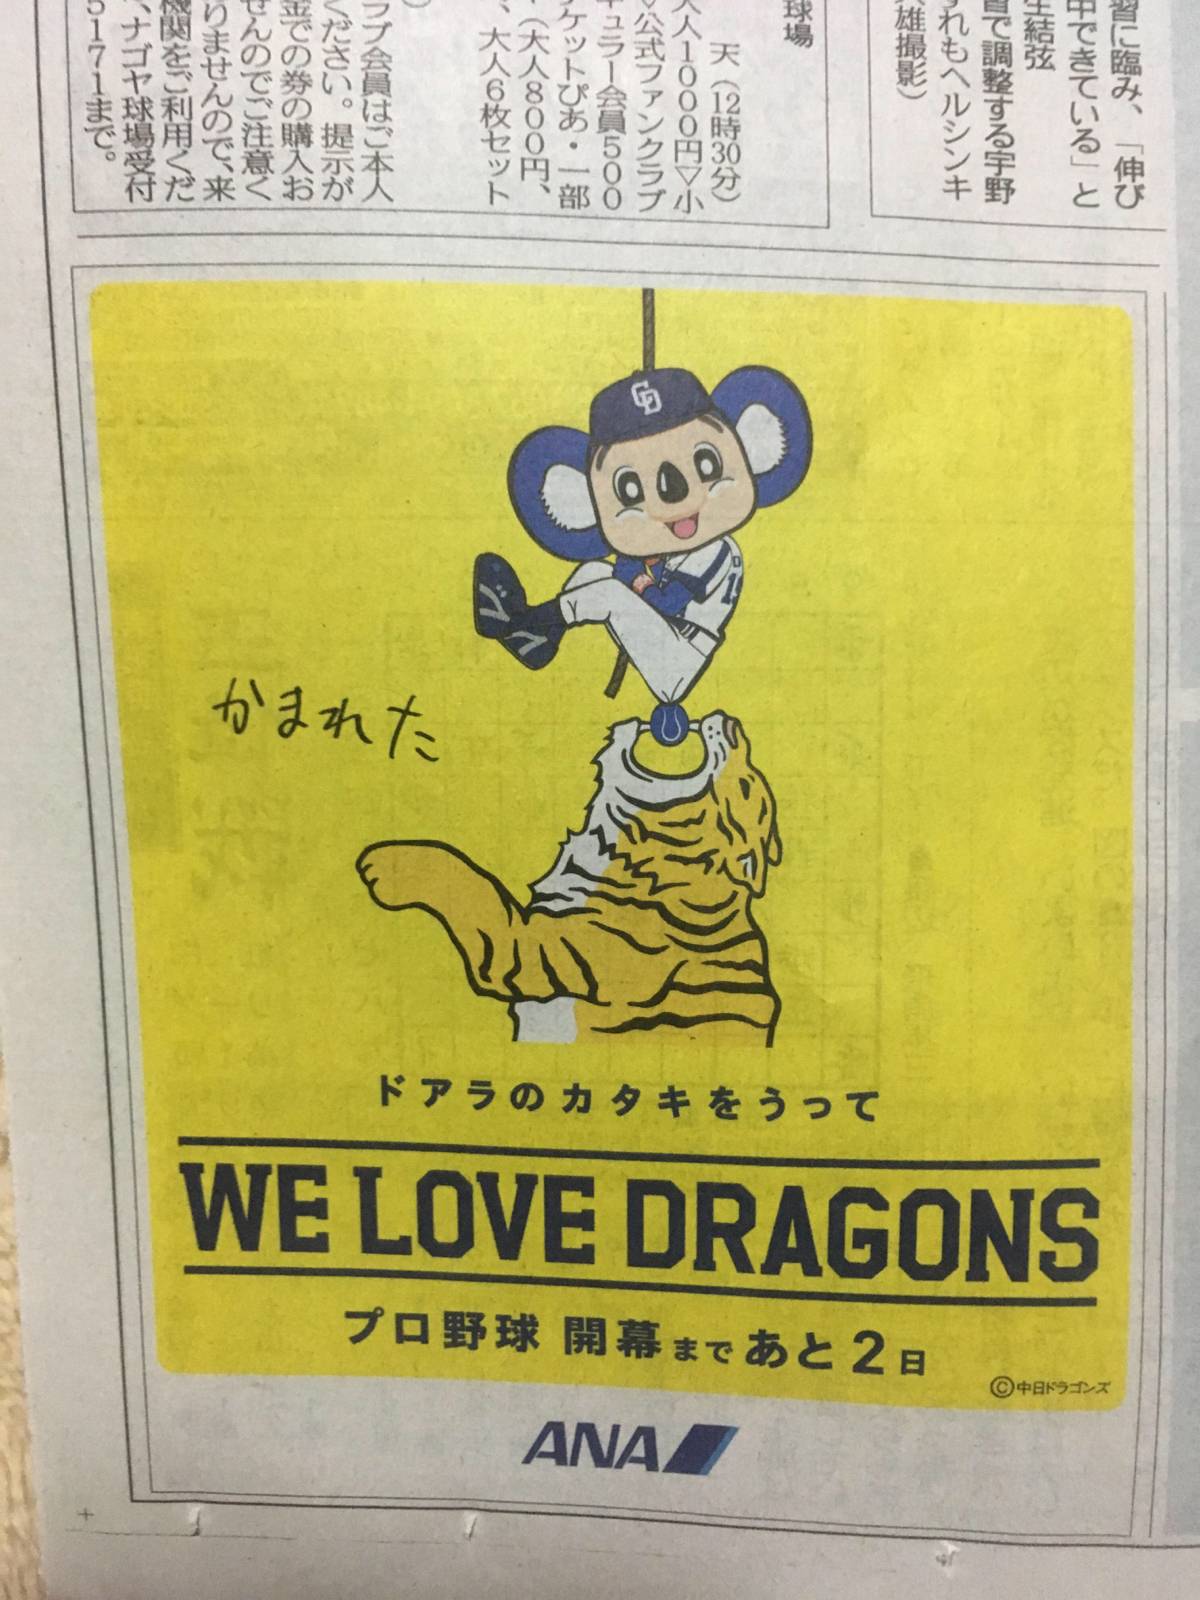 習に臨み、「伸び
中できている」と
生結弦
習で調整する宇野
ずれもヘルシンキ
雄撮影)
球場
天(12時30分)
大人1000円▽小
▽公式ファンクラブ
ギュラー会員500
ケットぴあ・一部
(大人800円、
、大人6枚セット
ラブ会員はご本人
ください。提示が
金での券の購入お
せんのでご注意く
りませんので、来
機関をご利用くだ
、ナゴヤ球場受付
5171まで。
CD
かまれた
ドアラのカタキをうって
WE LOVE DRAGONS
プロ野球 開幕まであと2日
©中日ドラゴンズ
ANA